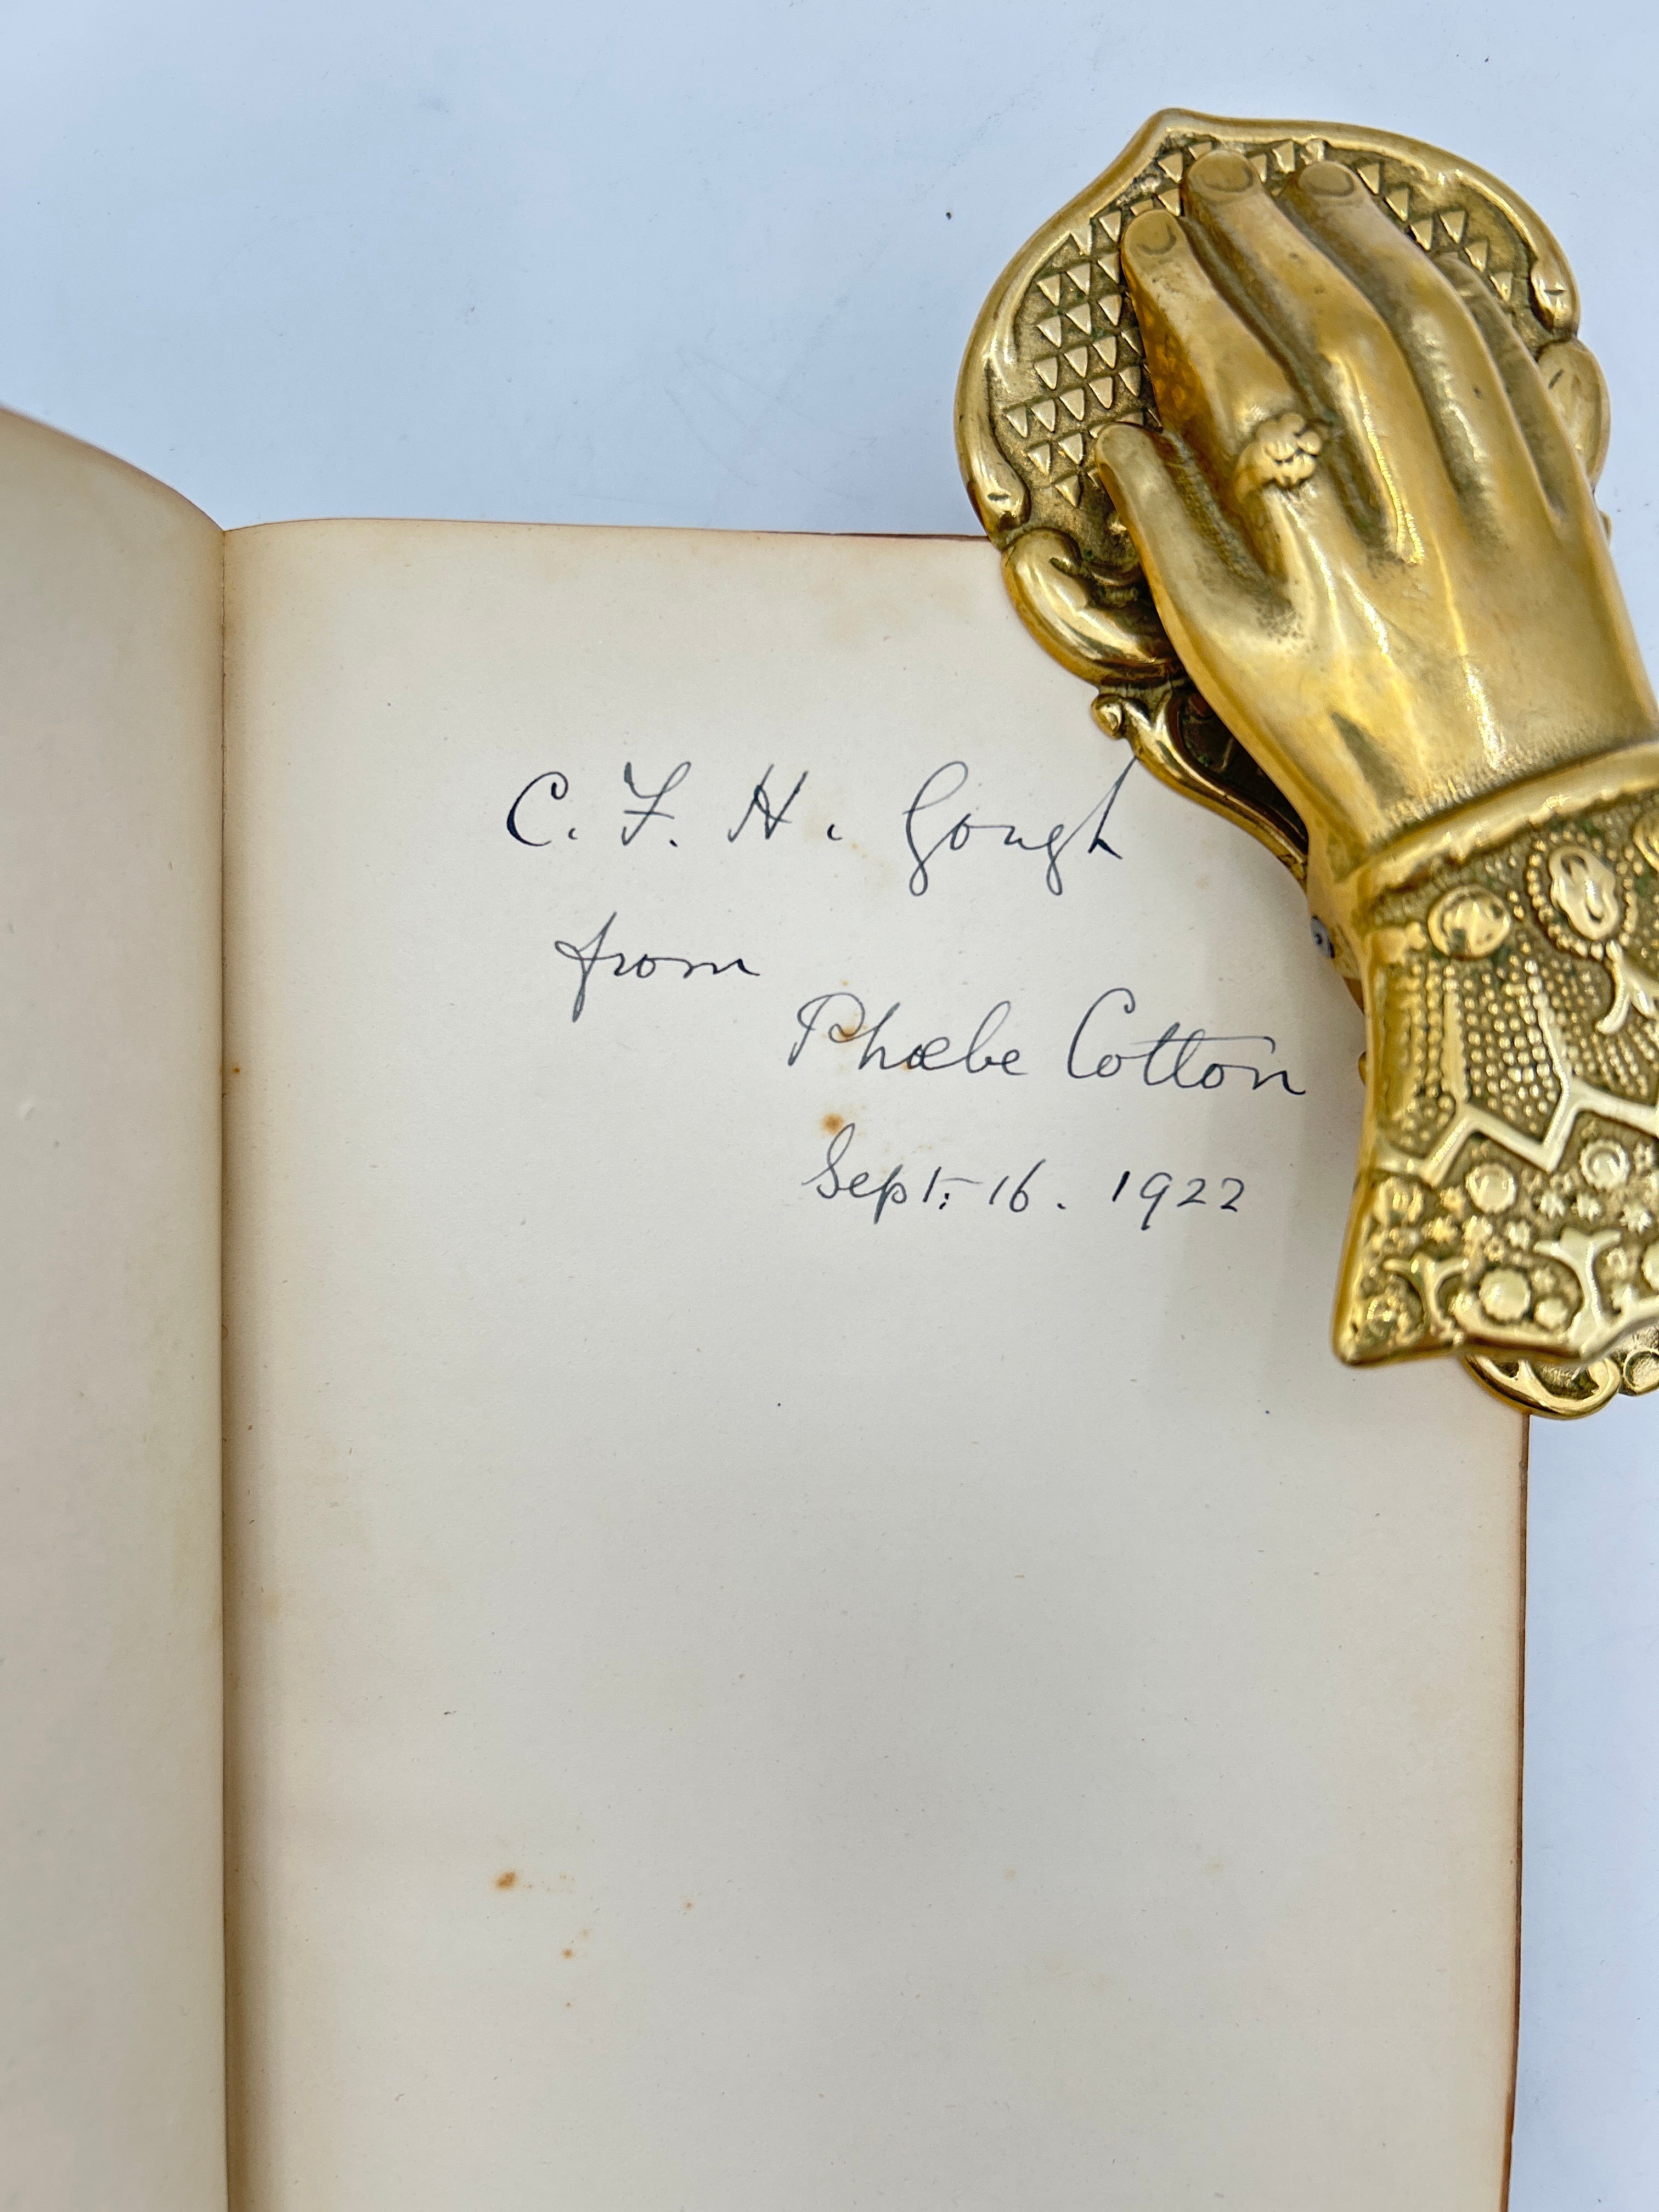 C. F. H. Gough
from
Phœbe Cotton
Sept. 16. 1922